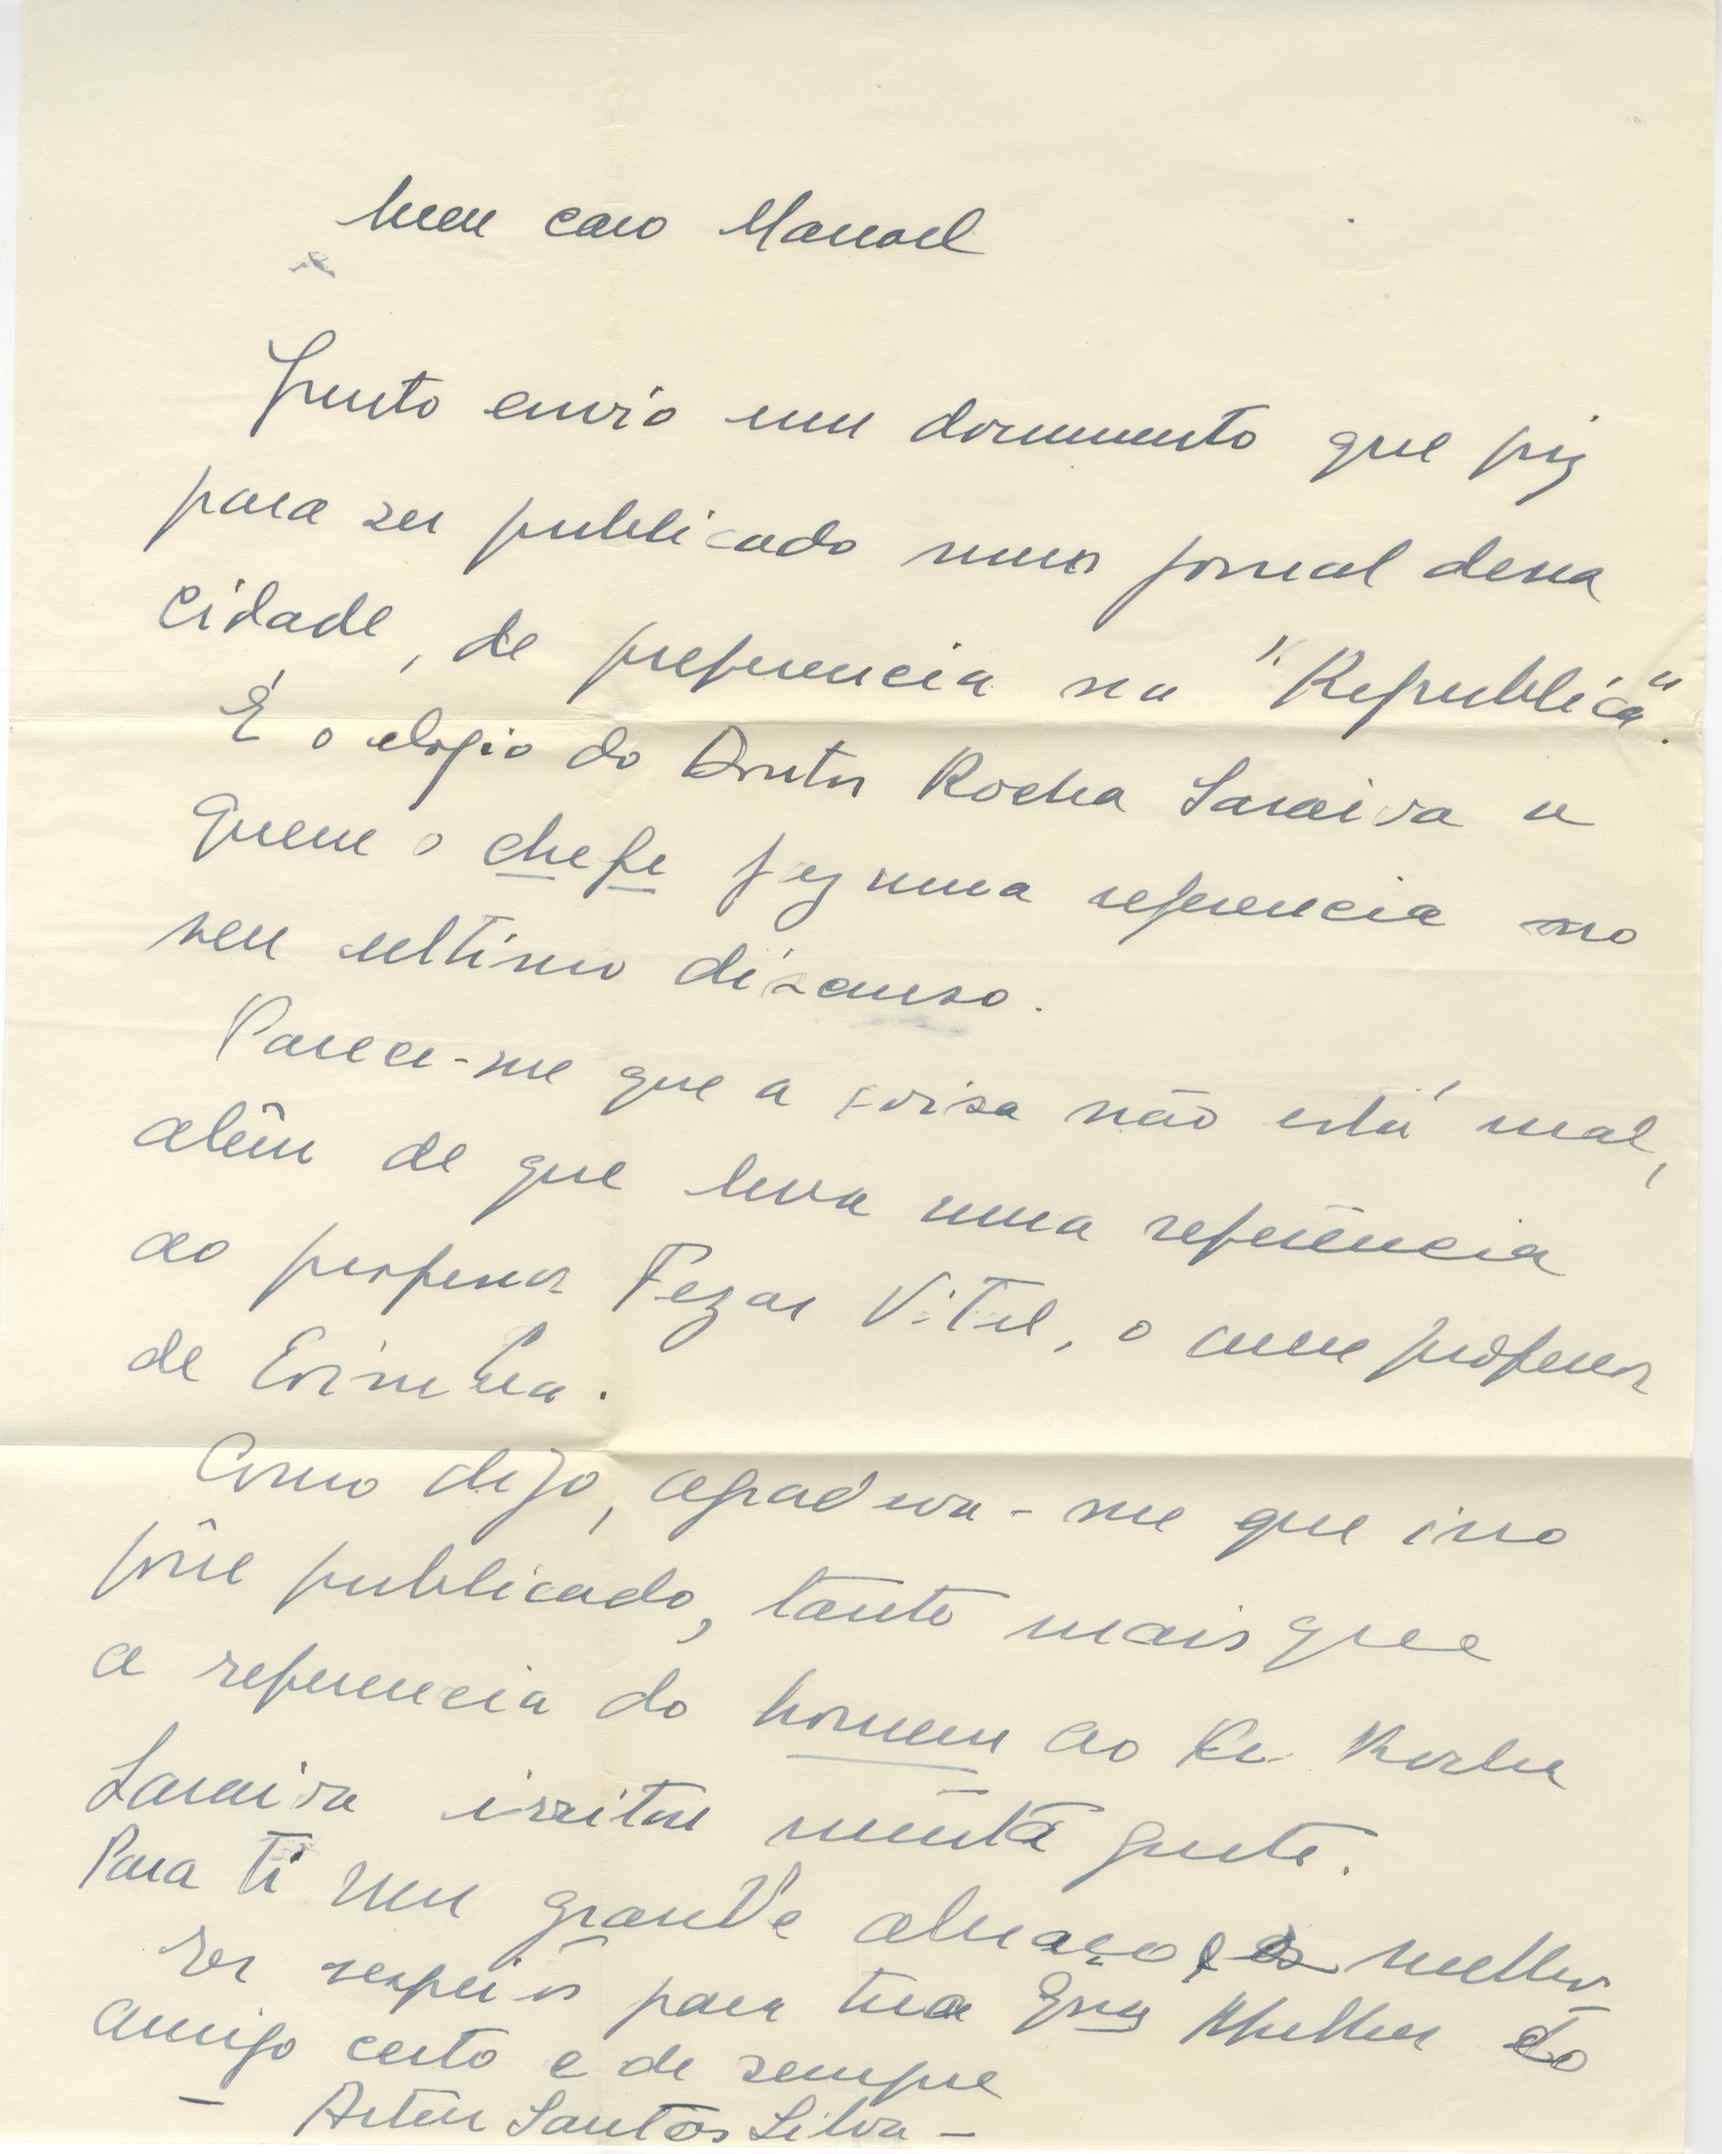 Meu caro Manoel
Junto envio um documento que fiz
para ser publicado num jornal dessa
cidade, de preferencia na "Republica".
É o elogio do Doutor Rocha Saraiva a
quem o chefe fez uma referencia no
seu ultimo discurso.
Parece-me que a coisa não está mal,
alêm de que leva uma referência
ao professor Fezas Vital, o meu professor
de Coimbra.
Como digo, agradava-me que isso
fôsse publicado, tanto mais que
a referencia do homem ao Dr. Rocha
Saraiva irritou muita gente.
Para ti um grande abraço e os melho-
res respeitos para tua Exma Mulher do
amigo certo e de sempre
- Artur Santos Silva -